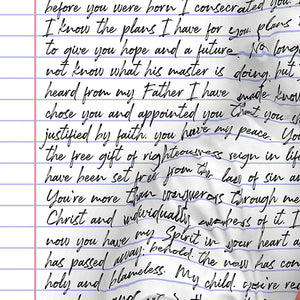 before you were born I consecrated you. I
I know the plans I have for you. plans
to give you hope and a future. No long
not know what his master is doing, but
heard from my Father I have made know
chose you and appointed you that you s
justified by faith. you have my peace. Yo
the free gift of righteousness reign in life
have been set free from the law of sin an
You're more than conquerors through me
Christ and individually members of it. I
now you have my Spirit in your heart a
has passed away; behold. the new has con
holy and blameless. My child. you're re